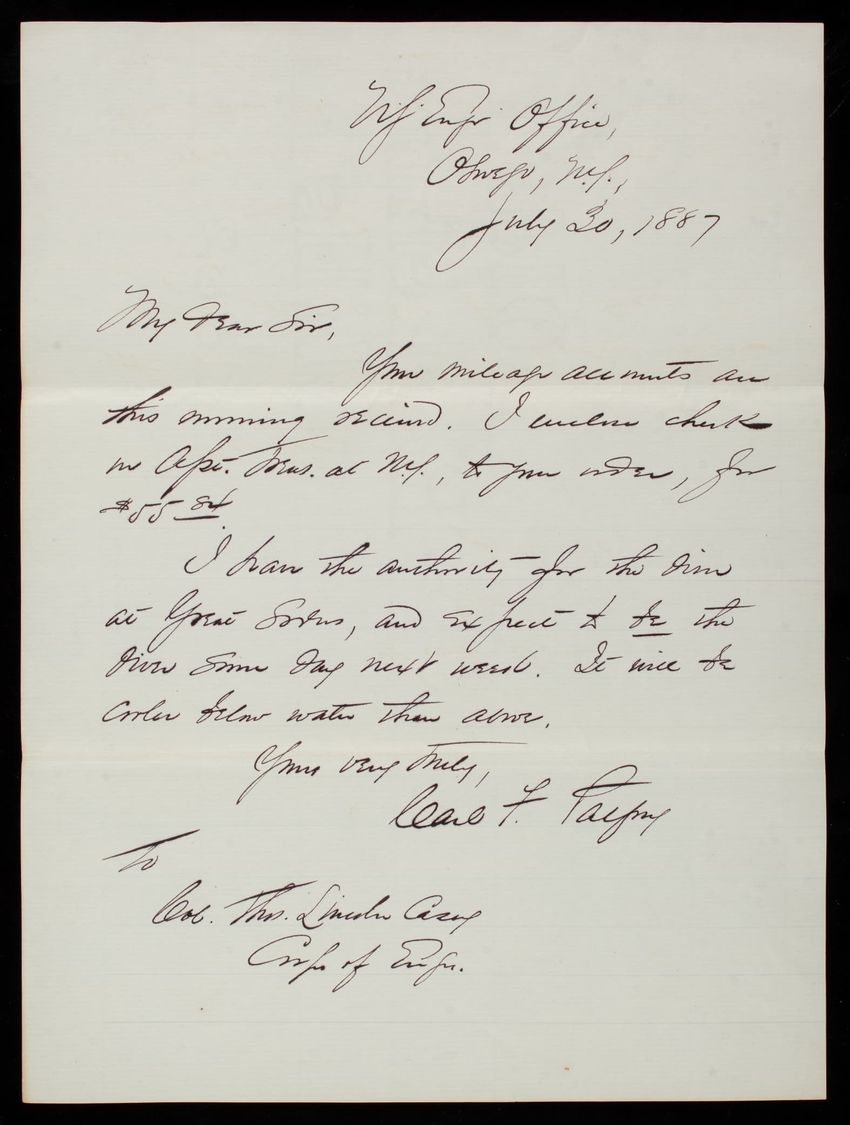 U.S. Engr Office,
Oswego, N.Y.,
July 30, 1887
My dear Sir,
Your mileage accounts are
this morning received. I enclose check
on Asst. Treas. at N.Y., to your order, for
$55 84.
I have the authority for the diver
at Great Sodus, and expect to be the
diver some day next week. It will be
cooler below water than above.
Yours very truly,
Carl F. Palfrey
To
Col. Thos. Lincoln Casey
Corps of Engrs.